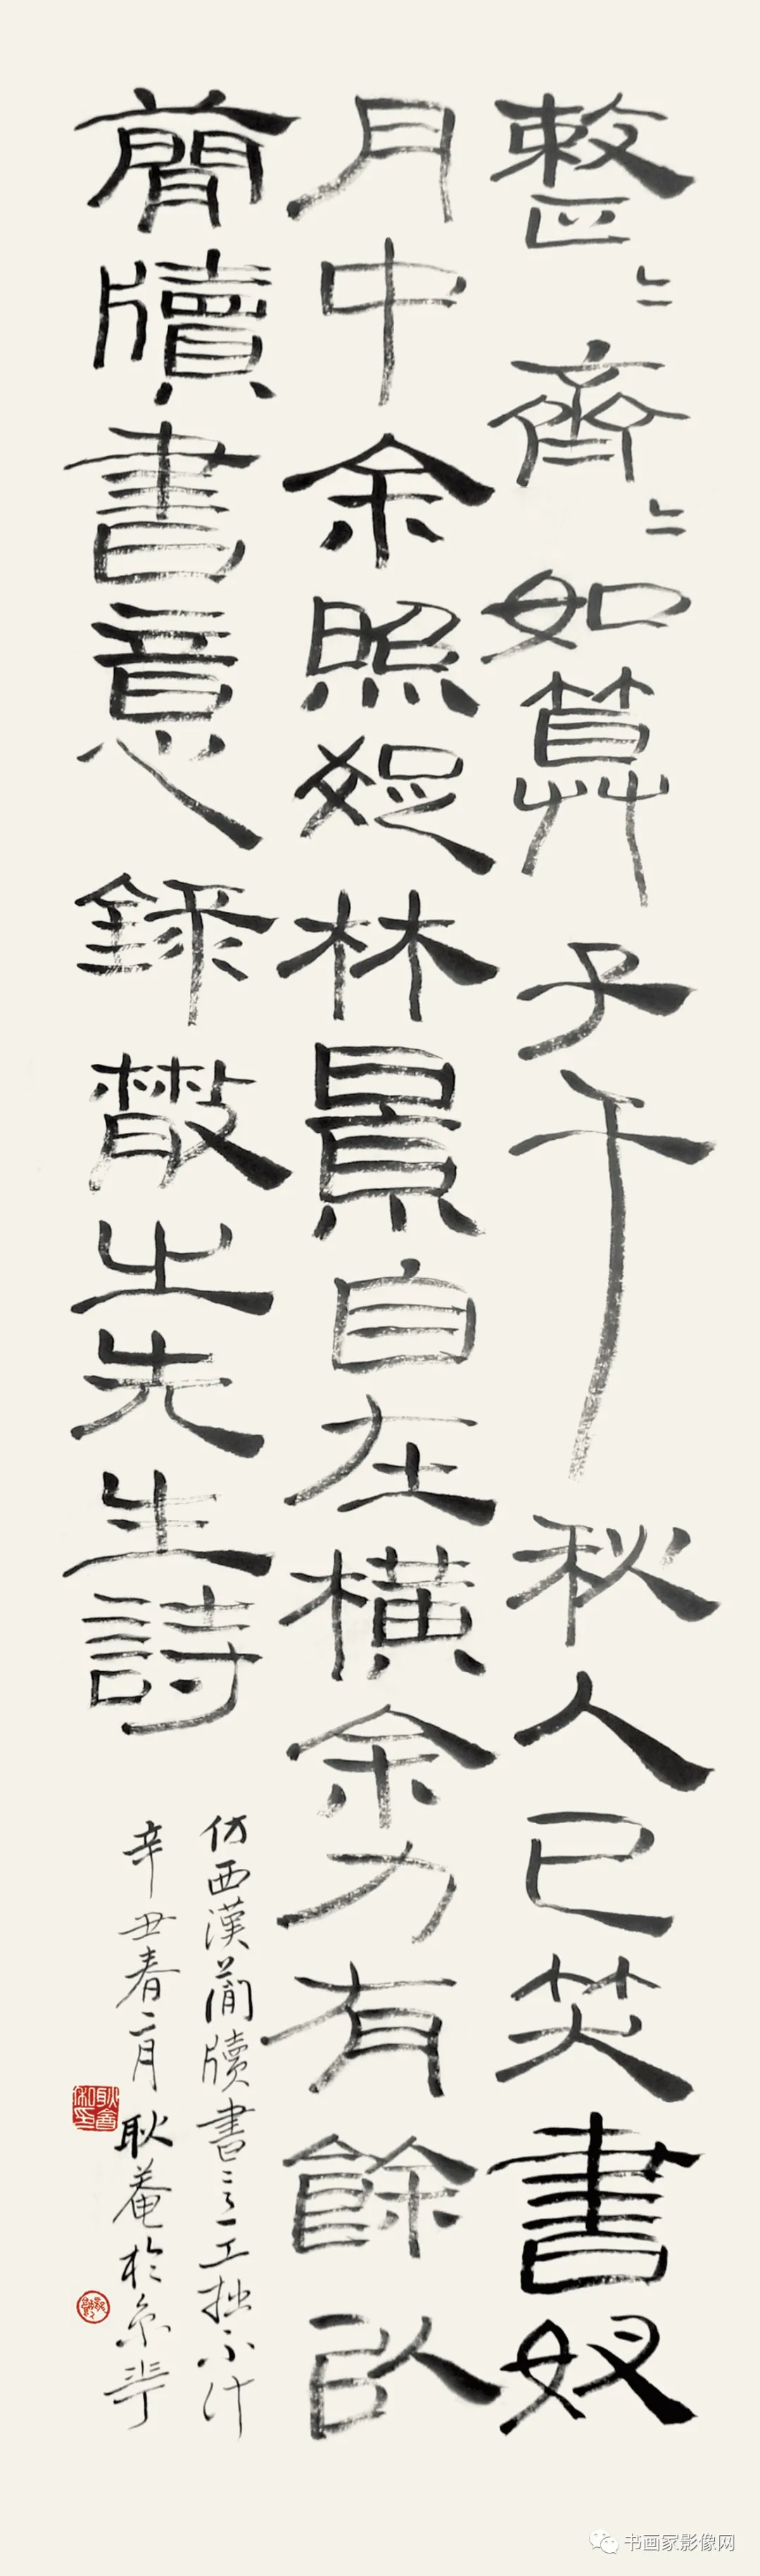 整〻齊〻如算子千秋人已笑書奴
月中余照娖林景自在橫余力有餘以
簡牘書意錄散之先生詩
仿西漢簡牘書意工拙不計
辛丑春二月耿菴於京華
书画家影像网